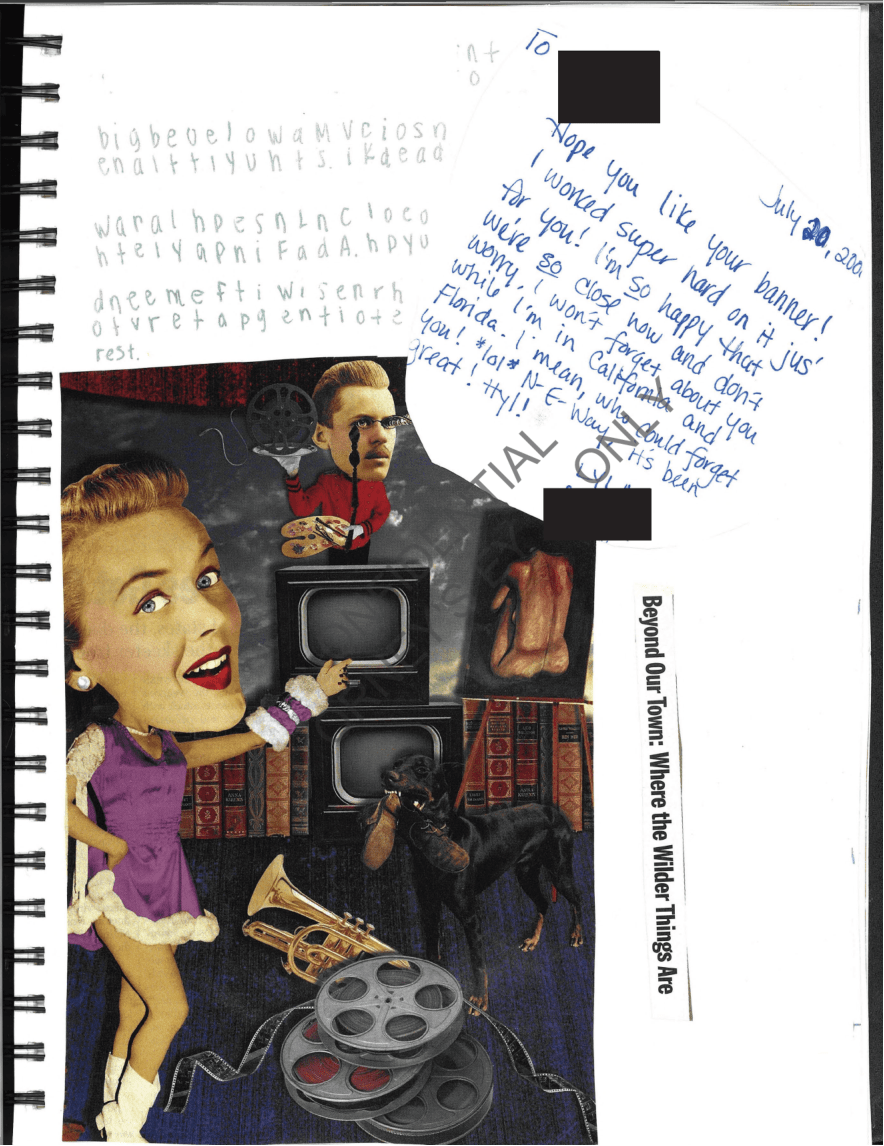 To
July 20, 200
Hope you like your banner!
I worked super hard on it jus'
for you! I'm so happy that
we're so close now and don't
worry, I won't forget about you
while I'm in California and
Florida. I mean, who could forget
you! *lol* N-E-Way, it's been
great! ttyl!
bigbeoelowaMVciosn
enalttiyuhts.ikdead
waralhpesnLnCloeo
hteiyapniFadA.hpyu
dneemeftiwisenrh
otvretapgentiote
rest.
Beyond Our Town: Where the Wilder Things Are
ONLY